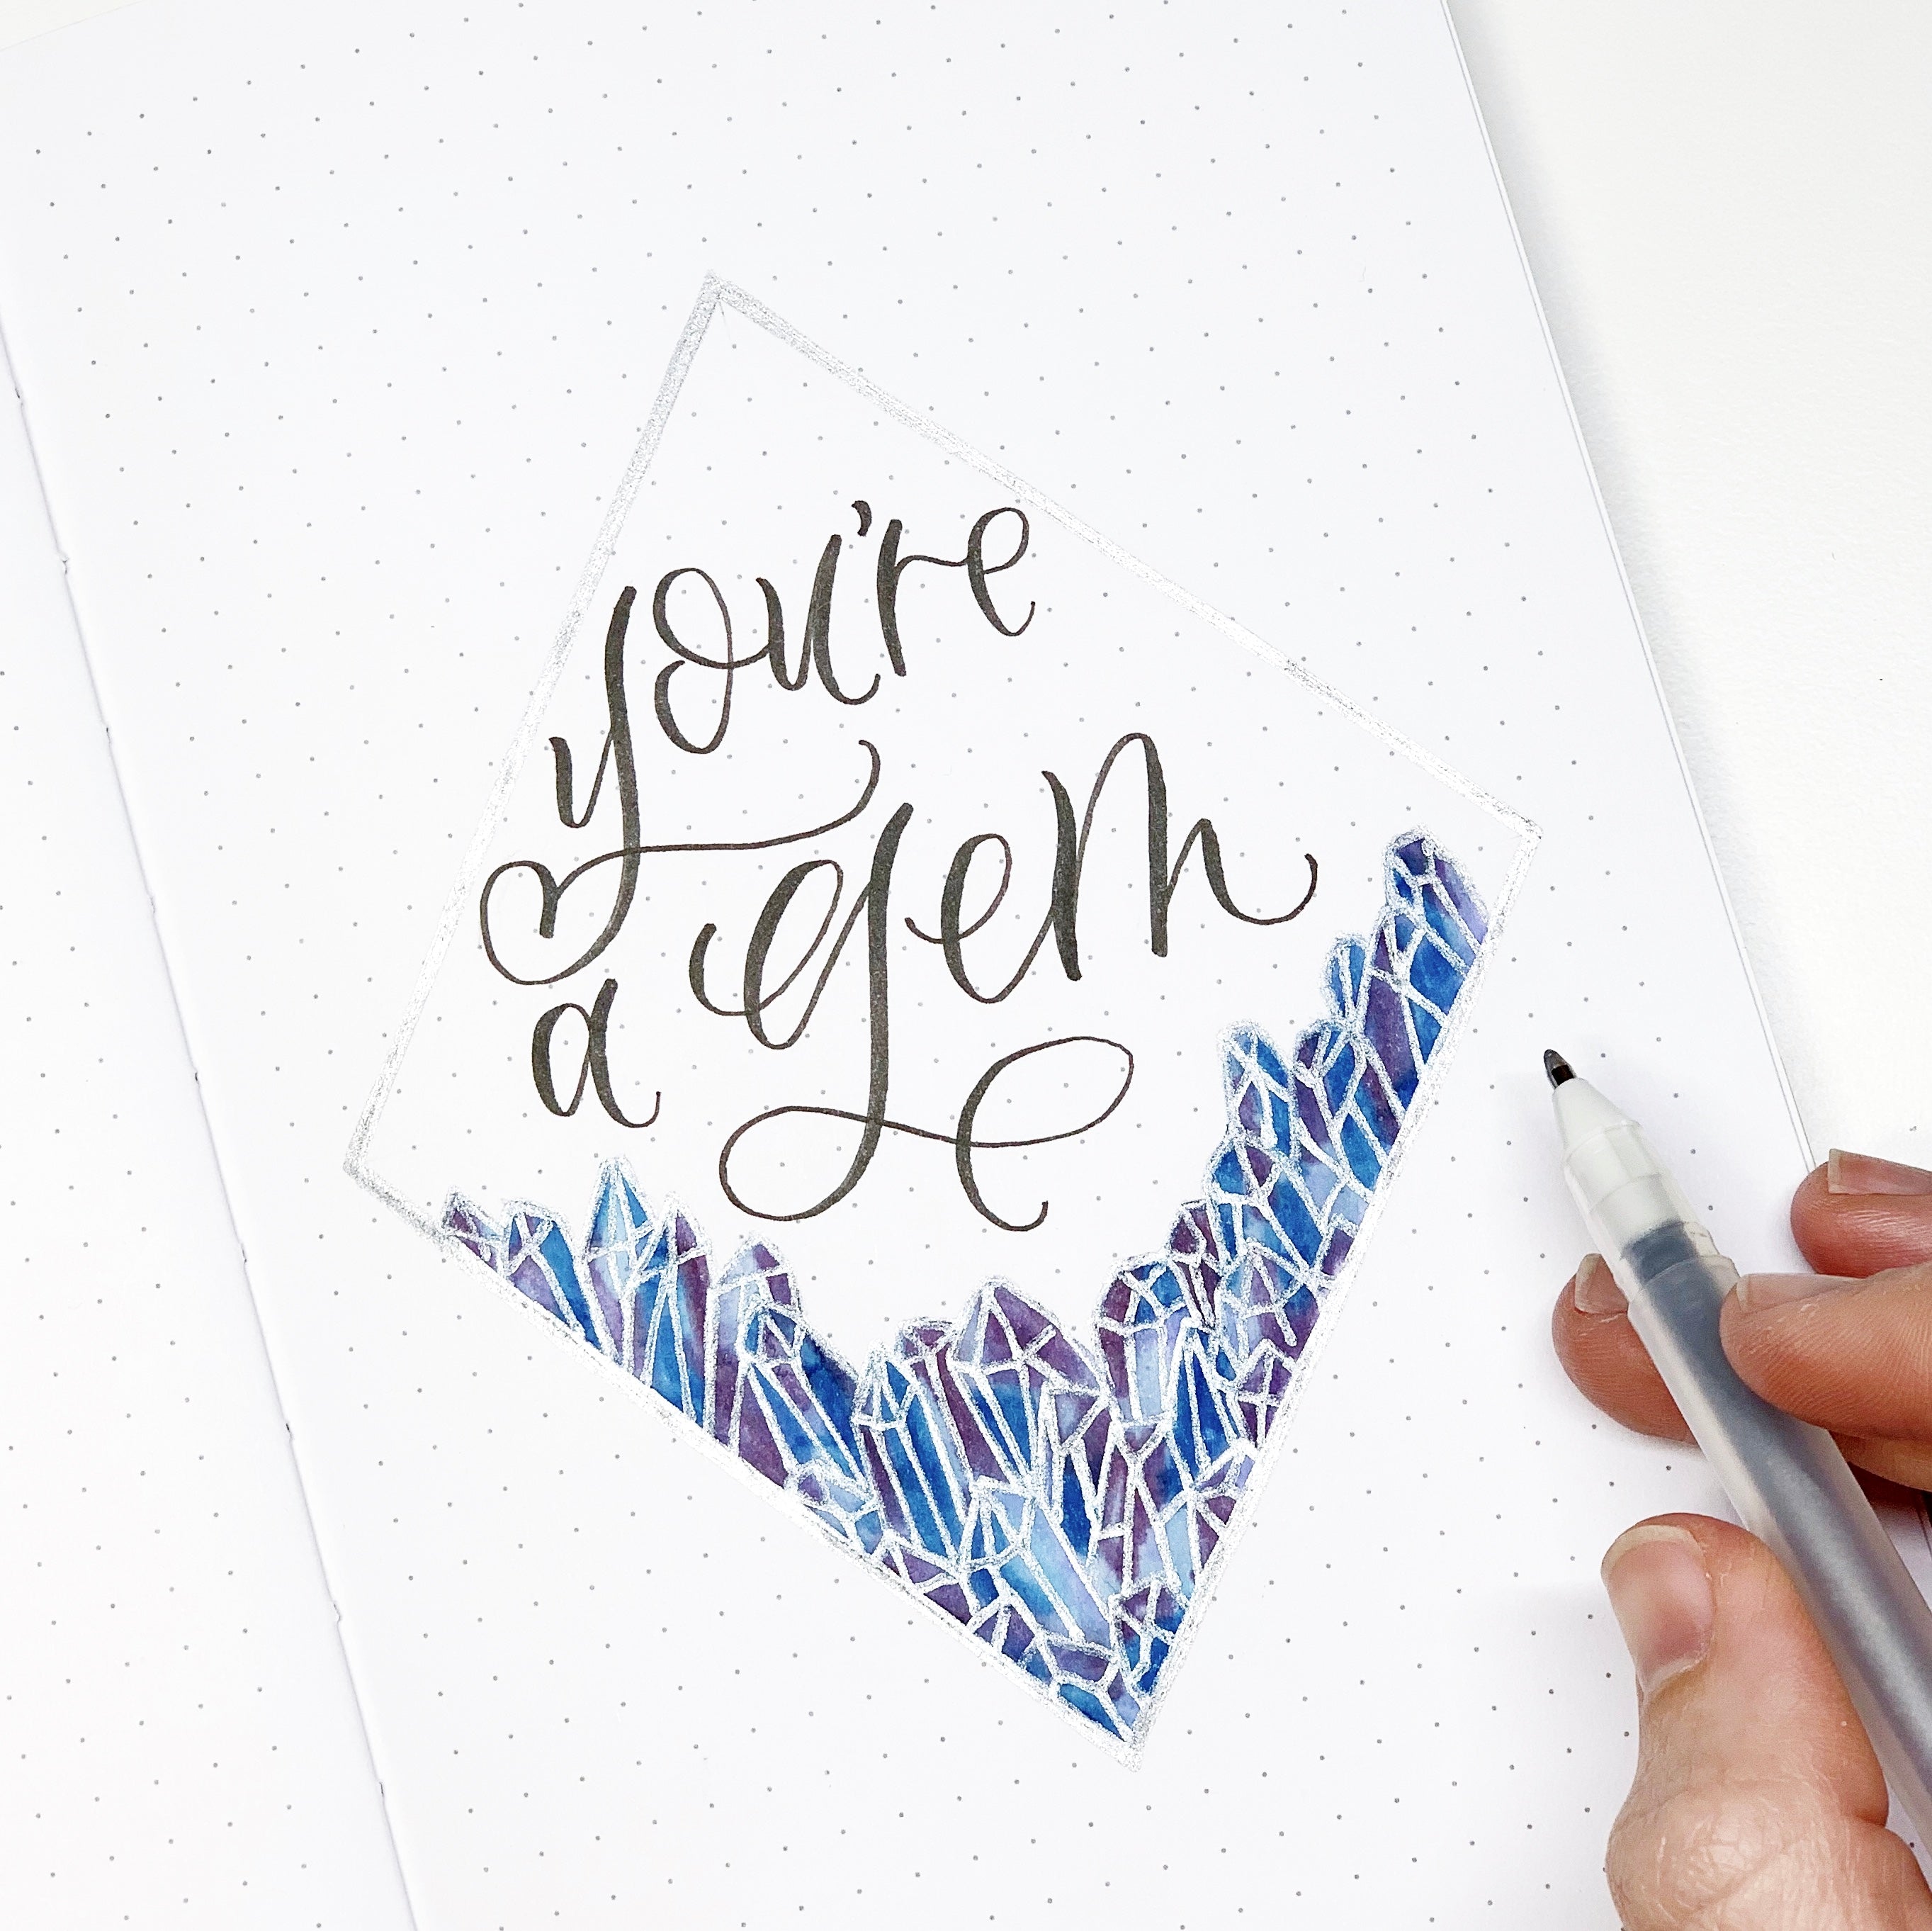 you're
a gem